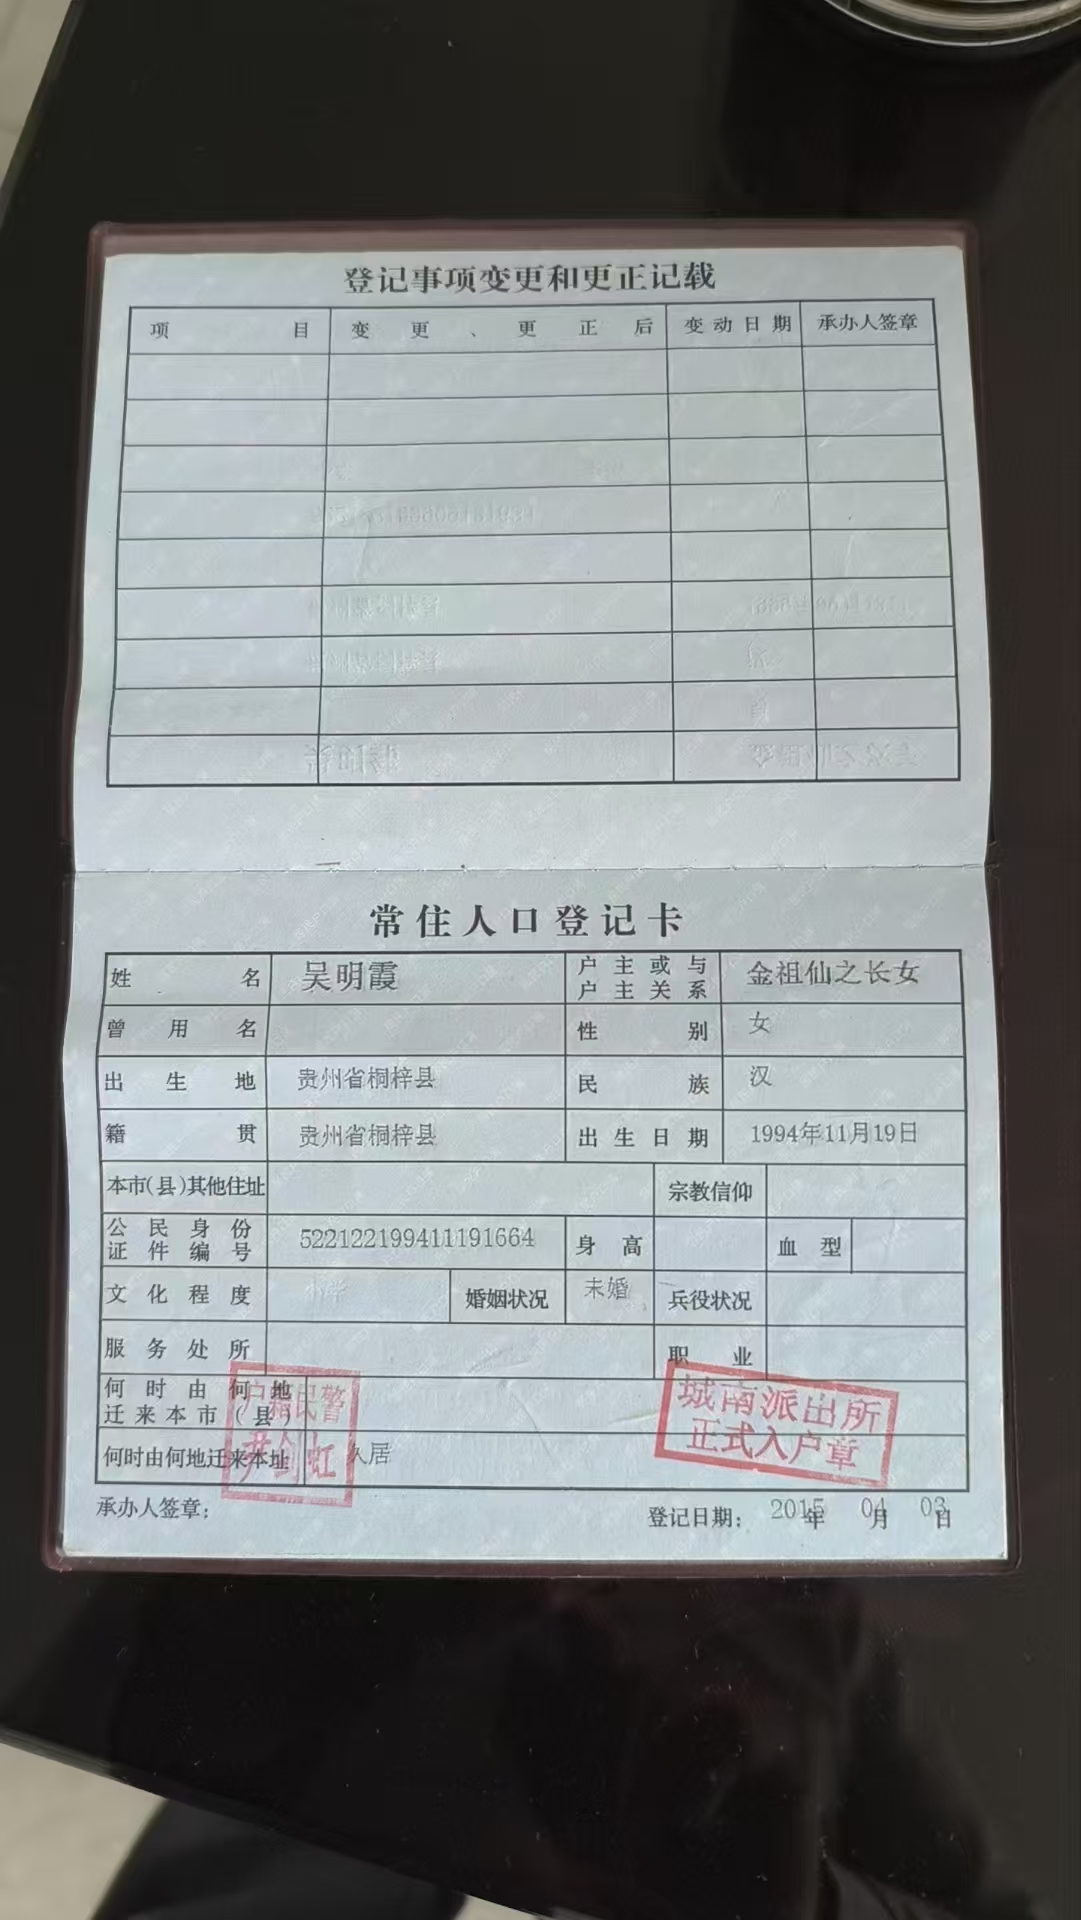 登记事项变更和更正记载
项目 变更、更正后 变动日期 承办人签章
常住人口登记卡
姓名 吴明霞 户主或与户主关系 金祖仙之长女
曾用名 性别 女
出生地 贵州省桐梓县 民族 汉
籍贯 贵州省桐梓县 出生日期 1994年11月19日
本市(县)其他住址 宗教信仰
公民身份证件编号 522122199411191664 身高 血型
文化程度 婚姻状况 未婚 兵役状况
服务处所 职业
何时由何地迁来本市(县)
户籍民警
城南派出所
正式入户章
何时由何地迁来本址 久居
承办人签章: 登记日期: 2015年04月03日